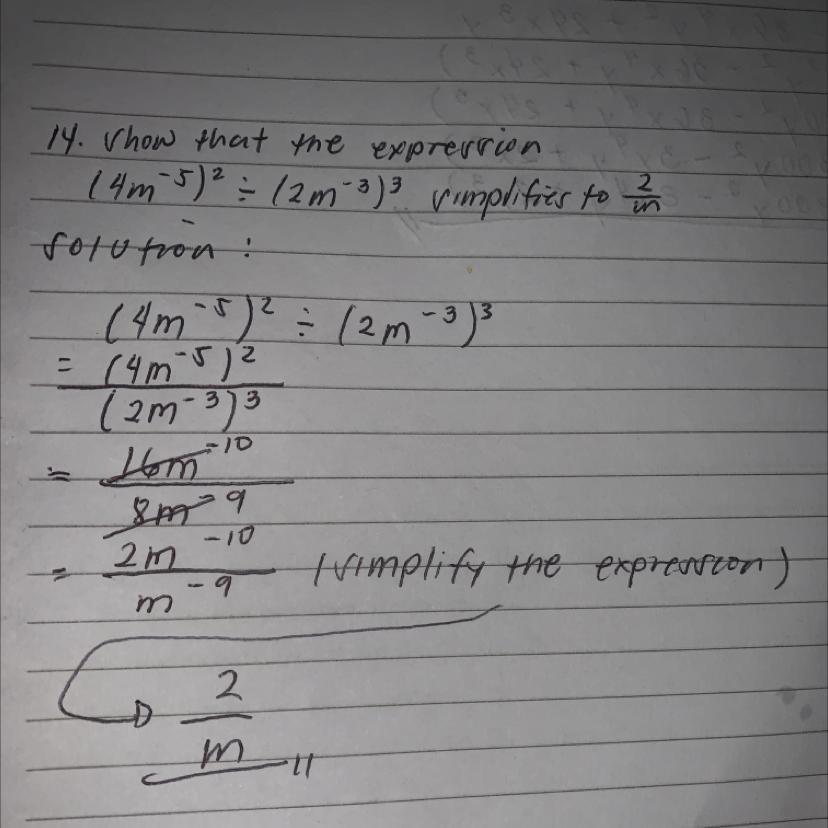 14. show that the expression
(4m⁻⁵)² ÷ (2m⁻³)³ simplifies to 2/m
solution :
(4m⁻⁵)² ÷ (2m⁻³)³
= (4m⁻⁵)²
(2m⁻³)³
= 16m⁻¹⁰
8m⁻⁹
= 2m⁻¹⁰ (simplify the expression)
m⁻⁹
2
m